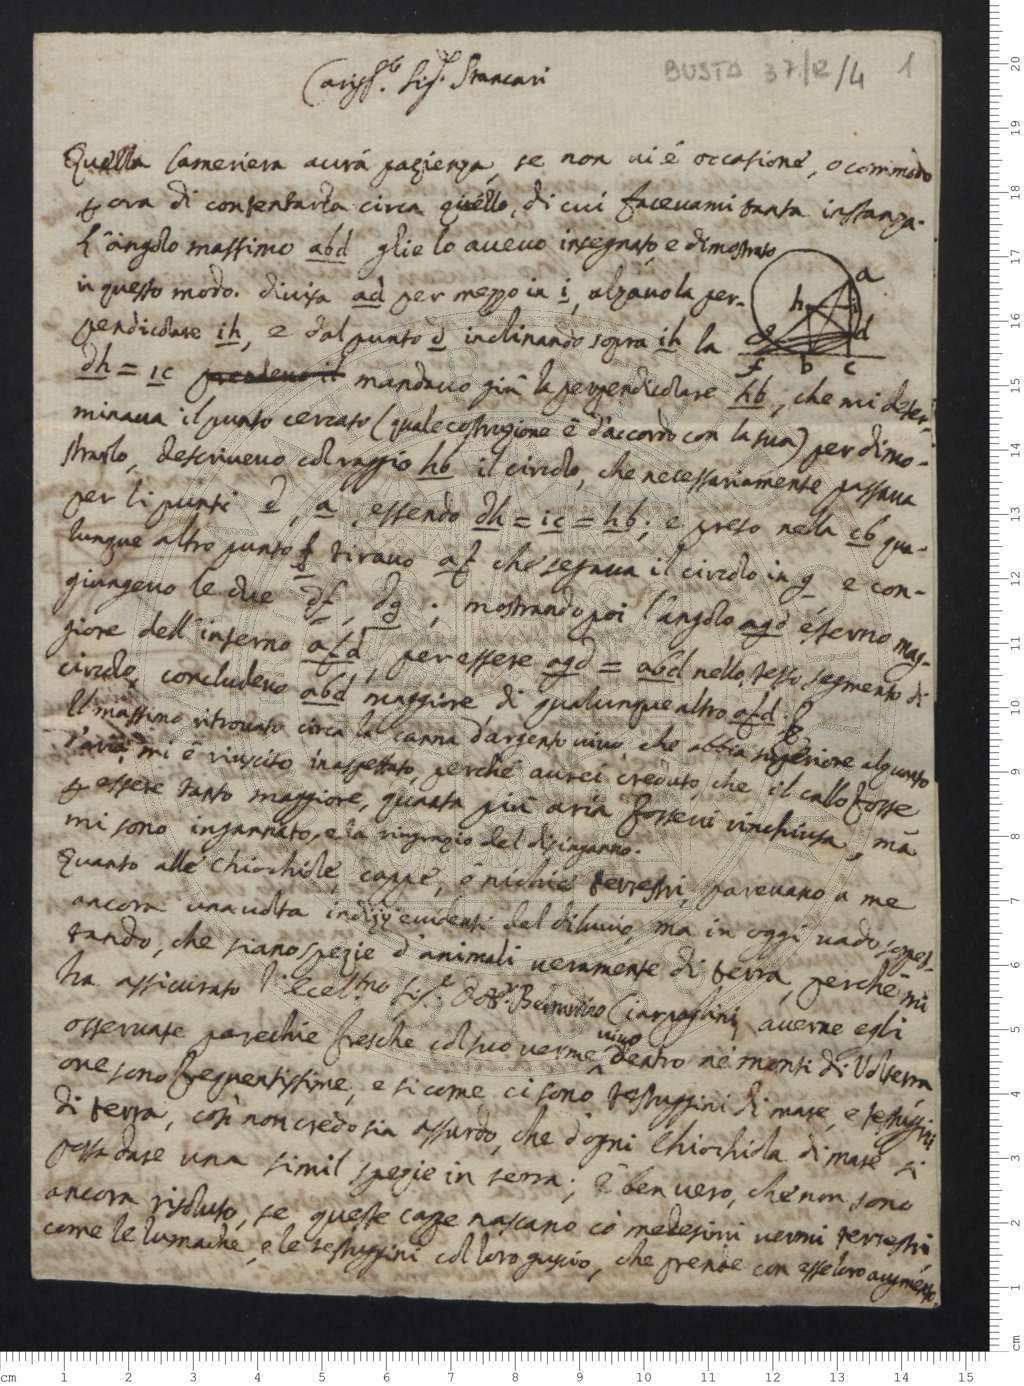 Cariss.º Sig.r Stancari
BUSTA 37/2/4 1
Quella Cameriera avrà pazienza, se non vi é occasione, o commodo
p ora di contentarla circa quello, di cui facevami tanta instanza.
L'angolo massimo abd glie lo avevo insegnato e dimostrato
in questo modo. divisa ad per mezzo in i, alzavo la per-
pendicolare ih, e dal punto d inclinando sopra ih la
dh = ic mandavo giù la perpendicolare hb, che mi deter-
minava il punto cercato (quale costruzione è d'accordo con la sua) per dimo-
strarlo, descrivevo col raggio hb il circolo, che necessariamente passava
per li punti d, a, essendo dh = ic = hb; e preso nella cb qua-
lunque altro punto f tiravo af che segava il circolo in g e con-
giungevo le due df, dg; mostrando poi l'angolo agd esterno mag-
giore dell'interno afd, per essere agd = abd nello stesso segmento di
circolo, concludevo abd maggiore di qualunque altro afd.
Il massimo ritrovato circa la canna d'argento vivo, che abbia superiore alquanto
d'aria, mi è riuscito inaspettato, perché avrei creduto, che il callo fosse
p essere tanto maggiore, quanta più aria fossevi rinchiusa, mà
mi sono ingannato, e la ringrazio del disinganno.
Quanto alle chiochiole, cappe, e nichie terrestri, parevano a me
ancora una volta indizj evidenti del diluvio, ma in oggi vado sospet-
tando, che siano spezie d'animali veramente di terra, perché mi
ha assicurato l'Ecel.mo Sig.r Dott.r Ciarpaglini, averne egli
osservate parechie fresche col suo verme vivo dentro né monti di Volterra
ove sono frequentissime, e sicome ci sono testuggini di mare, e testuggini
di terra, così non credo sia assurdo, che d'ogni chiochiola di mare si
possa dare una simil spezie in terra; È ben vero, che non sono
ancora risoluto, se queste cappe nascano có medesimi vermi terrestri
come le lumache, e le testuggini col loro guscio, che prende con esse loro augmento,
a
h
i
g
d
f
b
c